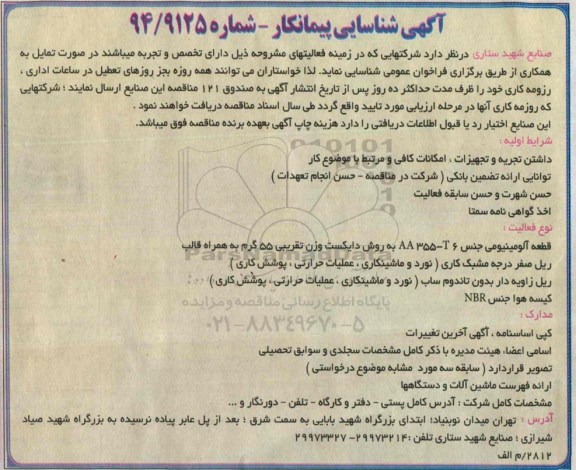 آگهی شناسایی پیمانکار - شماره ۹۴/۹۱۲۵
صنایع شهید ستاری درنظر دارد شرکتهایی که در زمینه فعالیتهای مشروحه ذیل دارای تخصص و تجربه میباشند در صورت تمایل به
همکاری از طریق برگزاری فراخوان عمومی شناسایی نماید. لذا خواستاران می توانند همه روزه بجز روزهای تعطیل در ساعات اداری ،
رزومه کاری خود را ظرف مدت حداکثر ده روز پس از تاریخ انتشار آگهی به صندوق ۱۲۱ مناقصه این صنایع ارسال نمایند ؛ شرکتهایی
که روزمه کاری آنها در مرحله ارزیابی مورد تایید واقع گردد طی سال اسناد مناقصه دریافت خواهند نمود .
این صنایع اختیار رد یا قبول اطلاعات دریافتی را دارد هزینه چاپ آگهی بعهده برنده مناقصه فوق میباشد.
شرایط اولیه :
داشتن تجربه و تجهیزات ، امکانات کافی و مرتبط با موضوع کار
توانایی ارائه تضمین بانکی ( شرکت در مناقصه - حسن انجام تعهدات )
حسن شهرت و حسن سابقه فعالیت
اخذ گواهی نامه سمتا
نوع فعالیت :
قطعه آلومینیومی جنس AA ۳۵۵-T ۶ به روش دایکست وزن تقریبی ۵۵ گرم به همراه قالب
ریل صفر درجه مشبک کاری ( نورد و ماشینکاری . عملیات حرارتی ، پوشش کاری )
ریل زاویه دار بدون تاندوم ساب ( نورد و ماشینکاری . عملیات حرارتی ، پوشش کاری )
کیسه هوا جنس NBR
مدارک :
کپی اساسنامه ، آگهی آخرین تغییرات
اسامی اعضاء هیئت مدیره با ذکر کامل مشخصات سجلدی و سوابق تحصیلی
تصویر قراردارد ( سابقه سه مورد مشابه موضوع درخواستی )
ارائه فهرست ماشین آلات و دستگاهها
مشخصات کامل شرکت : آدرس کامل پستی - دفتر و کارگاه - تلفن - دورنگار و ...
آدرس : تهران میدان نوبنیاد؛ ابتدای بزرگراه شهید بابایی به سمت شرق ؛ بعد از پل عابر پیاده نرسیده به بزرگراه شهید صیاد
شیرازی ؛ صنایع شهید ستاری تلفن :۲۹۹۷۳۲۱۴- ۲۹۹۷۳۳۲۷
۲۸۱۲/م الف
پایگاه اطلاع رسانی مناقصه و مزایده
۰۲۱-۸۸۳۴۹۶۷۰-۵